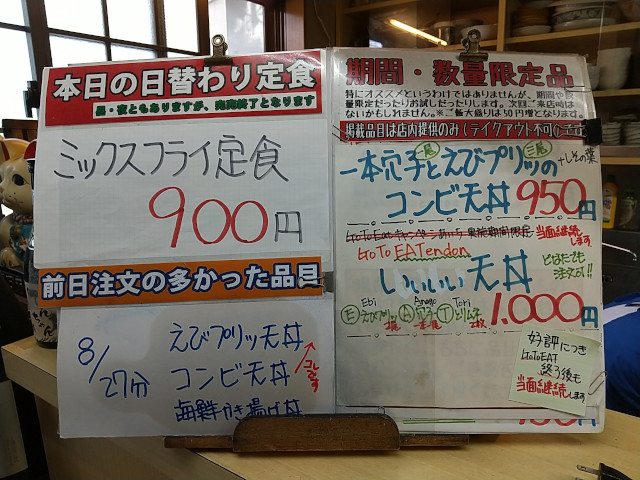 本日の日替わり定食
昼・夜ともありますが、完売終了となります
ミックスフライ定食
900円
前日注文の多かった品目
8/27分
えびプリッ天丼
コンビ天丼
コレです
海鮮かき揚げ丼
期間・数量限定品
特にオススメというわけではありませんが、期間や数
量限定だったりお試しだったりします。次回ご来店時は
ないかもしれません。※ご飯大盛りは50円増となります。
掲載品目は店内提供のみ(テイクアウト不可)
一本穴子と えびプリッの
二尾
+しその葉
コンビ天丼 950円
GoToEatキャンペーンあいち
当面継続します
GoTo EATendon
いいいい天丼
とはたでも
注文可!!
Ⓔ Ebi えびプリッ 2尾 Ⓐ Anago 穴子 一本 Ⓣ Tori とりムネ 2枚
1,000円
好評につき
GoToEAT
終了後も
当面継続します